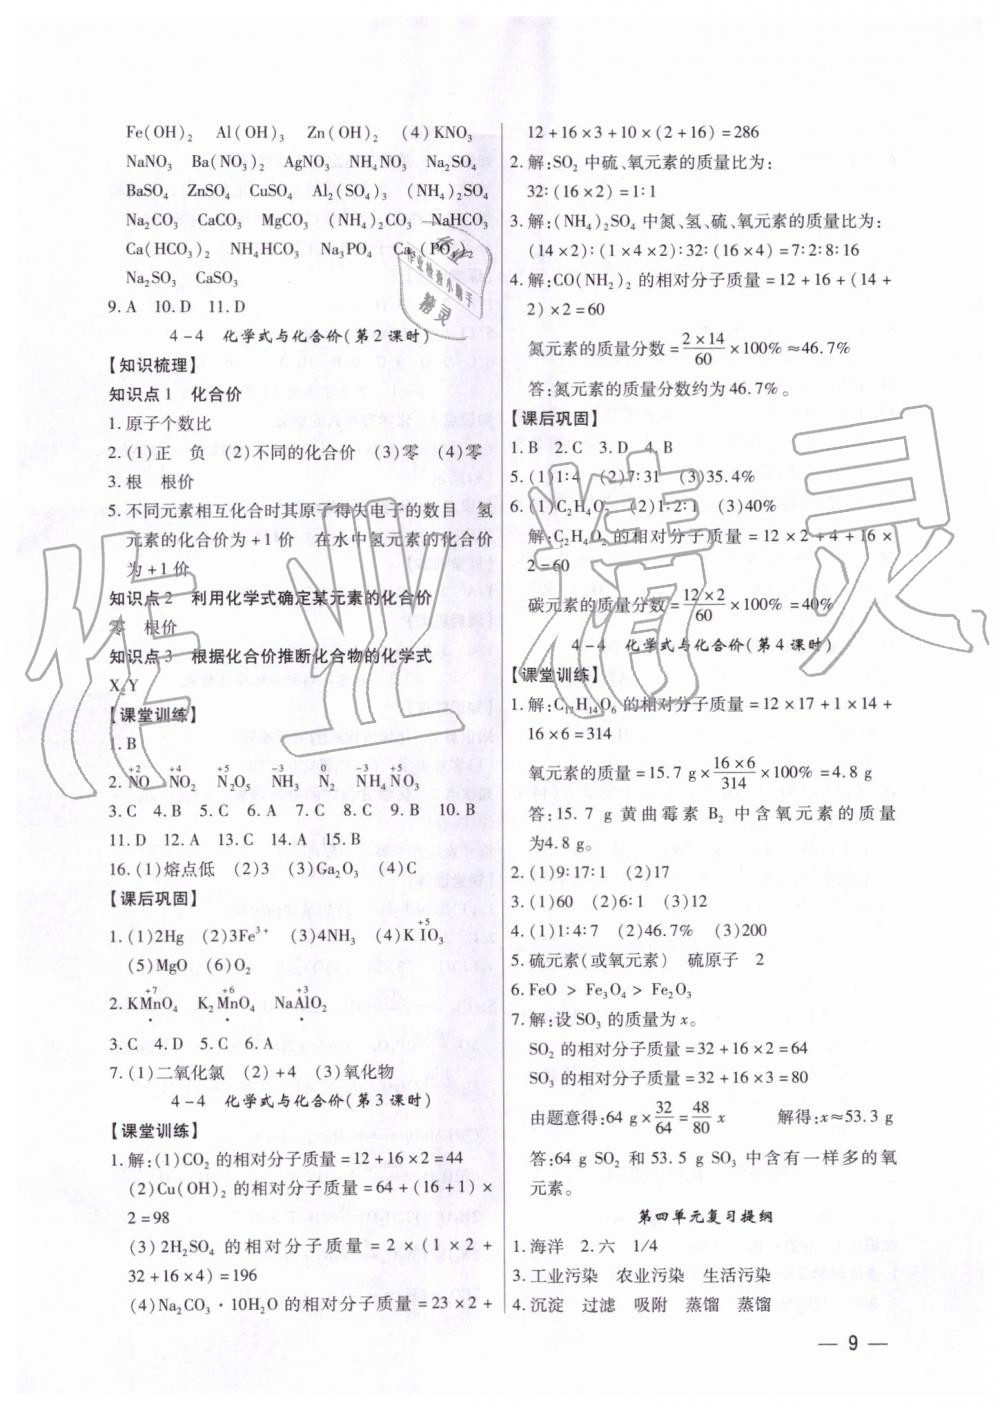 Fe(OH)₂ Al(OH)₃ Zn(OH)₂ (4)KNO₃
NaNO₃ Ba(NO₃)₂ AgNO₃ NH₄NO₃ Na₂SO₄
BaSO₄ ZnSO₄ CuSO₄ Al₂(SO₄)₃ (NH₄)₂SO₄
Na₂CO₃ CaCO₃ MgCO₃ (NH₄)₂CO₃ NaHCO₃
Ca(HCO₃)₂ NH₄HCO₃ Na₃PO₄ Ca₃(PO₄)₂
Na₂SO₃ CaSO₃
9. A 10. D 11. D
4-4 化学式与化合价(第2课时)
【知识梳理】
知识点1 化合价
1. 原子个数比
2. (1)正 负 (2)不同的化合价 (3)零 (4)零
3. 根 根价
5. 不同元素相互化合时其原子得失电子的数目 氢
元素的化合价为+1价 在水中氢元素的化合价
为+1价
知识点2 利用化学式确定某元素的化合价
零 根价
知识点3 根据化合价推断化合物的化学式
X₂Y
【课堂训练】
1. B
+2 +4 +5 -3 0 -3 +5
2. NO NO₂ N₂O₅ NH₃ N₂ NH₄NO₃
3. C 4. B 5. C 6. A 7. C 8. C 9. B 10. B
11. D 12. A 13. C 14. A 15. B
16. (1)熔点低 (2)3 (3)Ga₂O₃ (4)C
【课后巩固】
+5
1. (1)2Hg (2)3Fe³⁺ (3)4NH₃ (4)KIO₃
(5)MgO (6)O₂
+7 +6 +3
2. KMnO₄ K₂MnO₄ NaAlO₂
3. C 4. D 5. C 6. A
7. (1)二氧化氯 (2)+4 (3)氧化物
4-4 化学式与化合价(第3课时)
【课堂训练】
1. 解:(1)CO₂ 的相对分子质量=12+16×2=44
(2)Cu(OH)₂ 的相对分子质量=64+(16+1)×
2=98
(3)2H₂SO₄ 的相对分子质量=2×(1×2+
32+16×4)=196
(4)Na₂CO₃·10H₂O 的相对分子质量=23×2+
12+16×3+10×(2+16)=286
2. 解:SO₂ 中硫、氧元素的质量比为:
32:(16×2)=1:1
3. 解:(NH₄)₂SO₄ 中氮、氢、硫、氧元素的质量比为:
(14×2):(1×4×2):32:(16×4)=7:2:8:16
4. 解:CO(NH₂)₂ 的相对分子质量=12+16+(14+
2)×2=60
氮元素的质量分数=2×14/60×100%≈46.7%
答:氮元素的质量分数约为46.7%。
【课后巩固】
1. B 2. C 3. D 4. B
5. (1)1:4 (2)7:31 (3)35.4%
6. (1)C₂H₄O₂ (2)1:2:1 (3)40%
解:C₂H₄O₂ 的相对分子质量=12×2+4+16×
2=60
碳元素的质量分数=12×2/60×100%=40%
4-4 化学式与化合价(第4课时)
【课堂训练】
1. 解:C₁₇H₁₄O₆ 的相对分子质量=12×17+1×14+
16×6=314
氧元素的质量=15.7 g×16×6/314×100%=4.8 g
答:15.7 g 黄曲霉素 B₂ 中含氧元素的质量
为4.8 g。
2. (1)9:17:1 (2)17
3. (1)60 (2)6:1 (3)12
4. (1)1:4:7 (2)46.7% (3)200
5. 硫元素(或氧元素) 硫原子 2
6. FeO > Fe₃O₄ > Fe₂O₃
7. 解:设 SO₃ 的质量为 x。
SO₂ 的相对分子质量=32+16×2=64
SO₃ 的相对分子质量=32+16×3=80
由题意得:64 g×32/64=48/80 x 解得:x≈53.3 g
答:64 g SO₂ 和 53.5 g SO₃ 中含有一样多的氧
元素。
第四单元复习提纲
1. 海洋 2. 六 1/4
3. 工业污染 农业污染 生活污染
4. 沉淀 过滤 吸附 蒸馏 蒸馏
— 9 —
作业精灵
作业
作业检查小助手
精灵